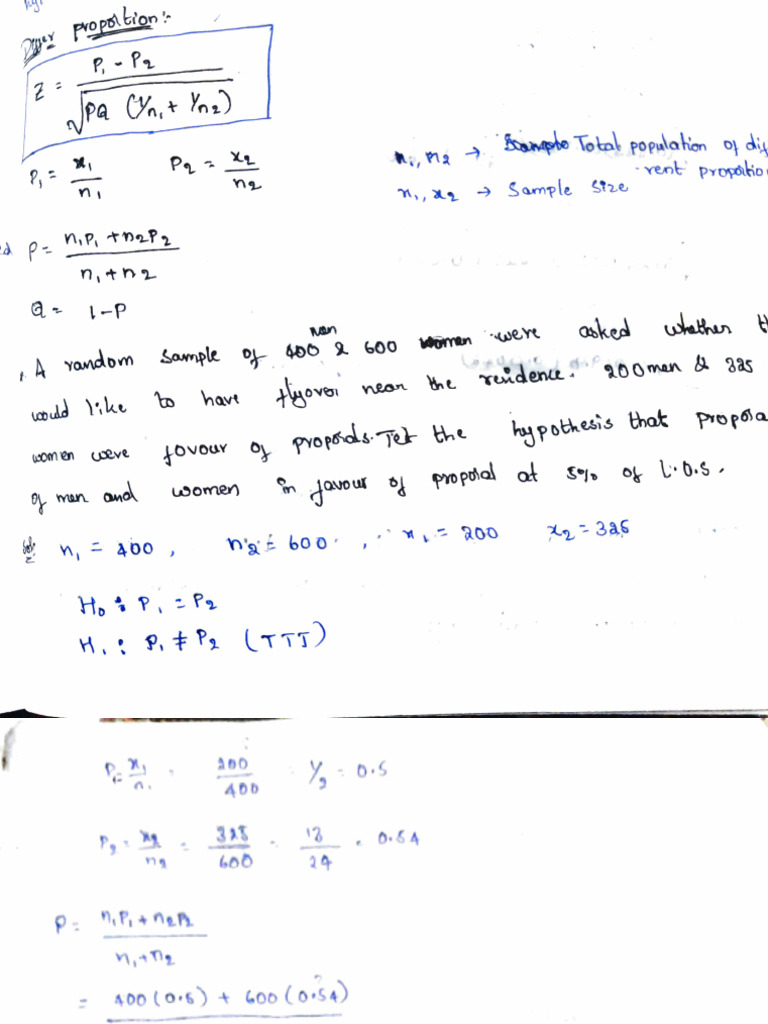 Differ proportion:-
Z = P₁ - P₂ / √PQ (1/n₁ + 1/n₂)
P₁ = x₁/n₁ P₂ = x₂/n₂
n₁, n₂ → Sample Total population of dif
rent proportio
n₁, x₂ → Sample size
P = n₁P₁ + n₂P₂ / n₁ + n₂
Q = 1-P
A random sample of 400 men & 600 women were asked whether th
would like to have flyover near the residence. 200 men & 325
women were fovour of proposals. Tet the hypothesis that propora
of men and women in favour of proposal at 5% of L.O.S.
Sol: n₁ = 400, n₂ = 600, x₁ = 200 x₂ = 325
H₀ : P₁ = P₂
H₁ : P₁ ≠ P₂ (TTT)
P₁ = x₁/n₁ = 200/400 = 1/2 = 0.5
P₂ = x₂/n₂ = 325/600 = 13/24 = 0.54
P = n₁P₁ + n₂P₂ / n₁ + n₂
= 400(0.5) + 600(0.54)